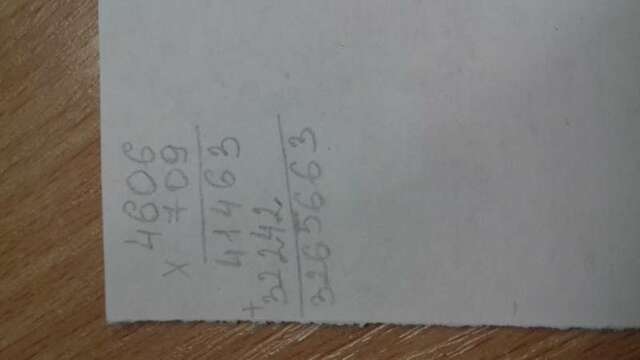 4606
x 709
41463
+
32242
3265663